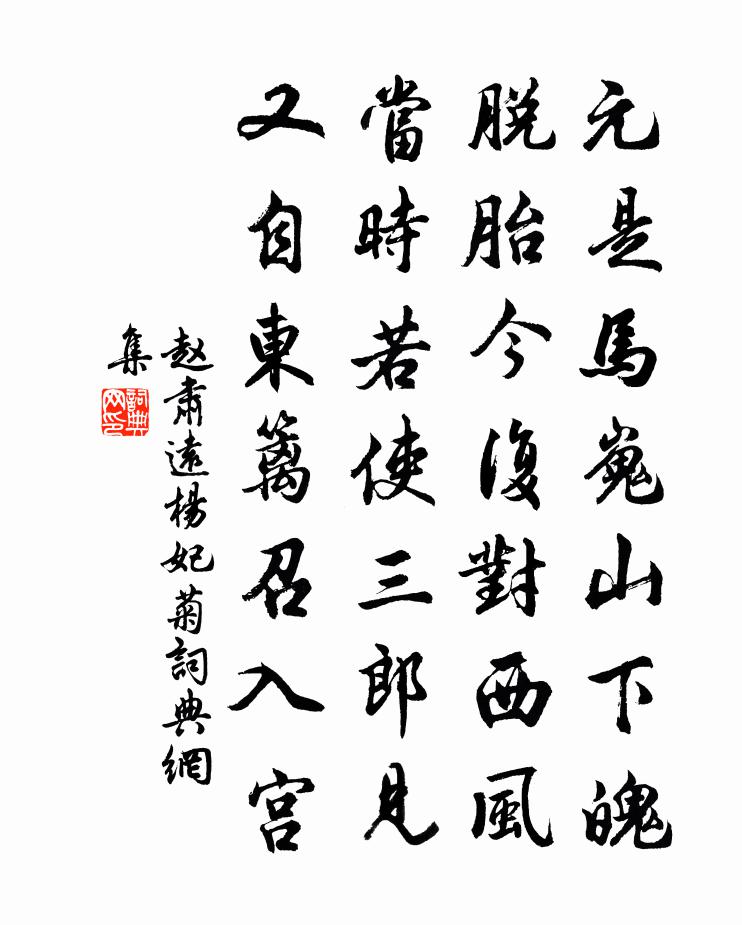 元是馬嵬山下魄
脱胎今復對西風
當時若使三郎見
又自東籬召入宫
赵肅遠楊妃菊詞典網
集
詞典
网印